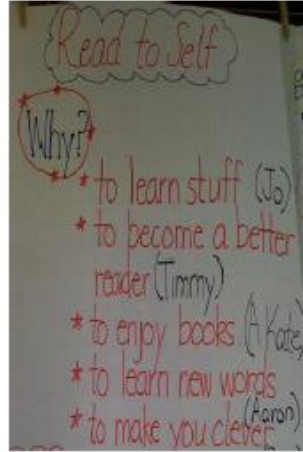 Read to Self
Why?
* to learn stuff (Jo)
* to become a better
reader (Timmy)
* to enjoy books (A Kate)
* to learn new words
(Aaron)
* to make you clever